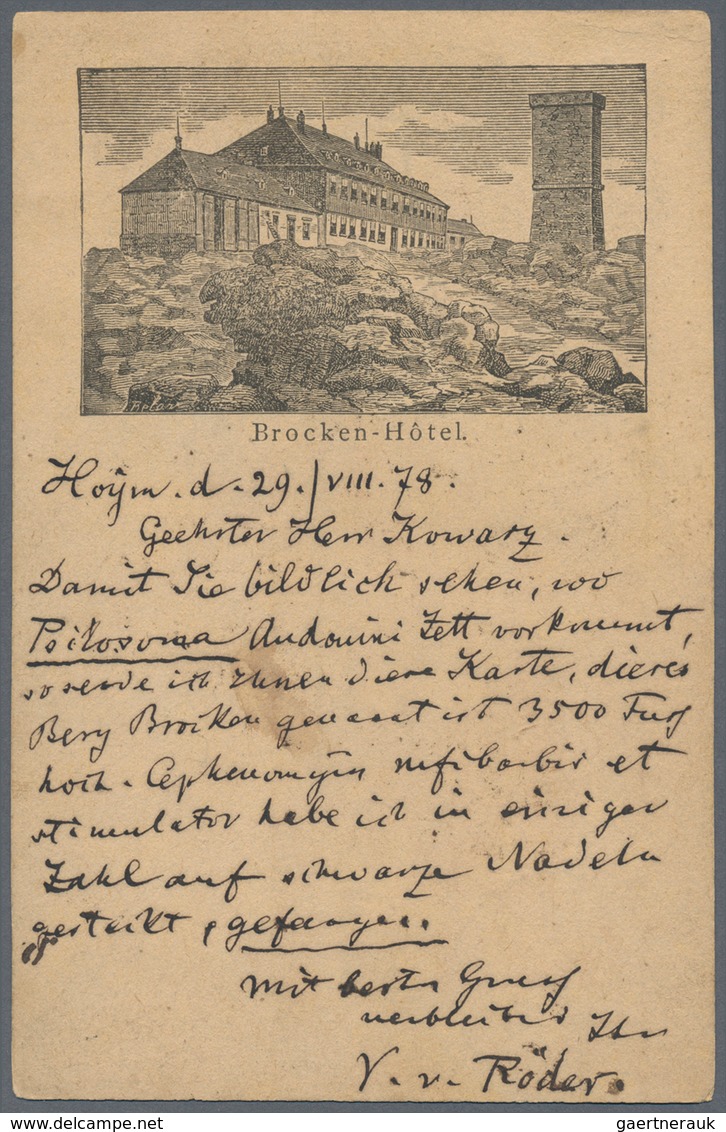 Brocken-Hôtel.
Hoÿm. d. 29./VIII. 78.
Geehrter Herr Kowarz.
Damit Sie bildlich sehen, wo
Psilosoma Audouini Zett vorkommt,
so sende ich Ihnen diese Karte, dieser
Berg Brocken genannt ist 3500 Fuss
hoch. rufibarbis et
stimulator habe ich in einiger
Zahl auf schwarze Nadeln
gesteckt, gefangen.
Mit besten Gruss
verbleibe Ihr
V. v. Röder.
www.delcampe.net
gaertnerauk